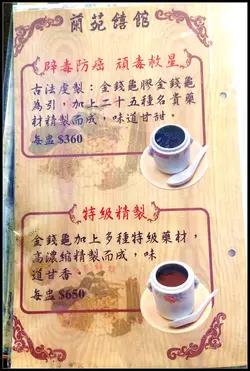 蘭苑饎館
辟毒防癌 頑毒救星
古法虔製：金錢龜膠金錢龜
為引，加上二十五種名貴藥
材精製而成，味道甘甜。
每盅 $360
特級精製
金錢龜加上多種特級藥材，
高濃縮精製而成，味
道甘香。
每盅 $650